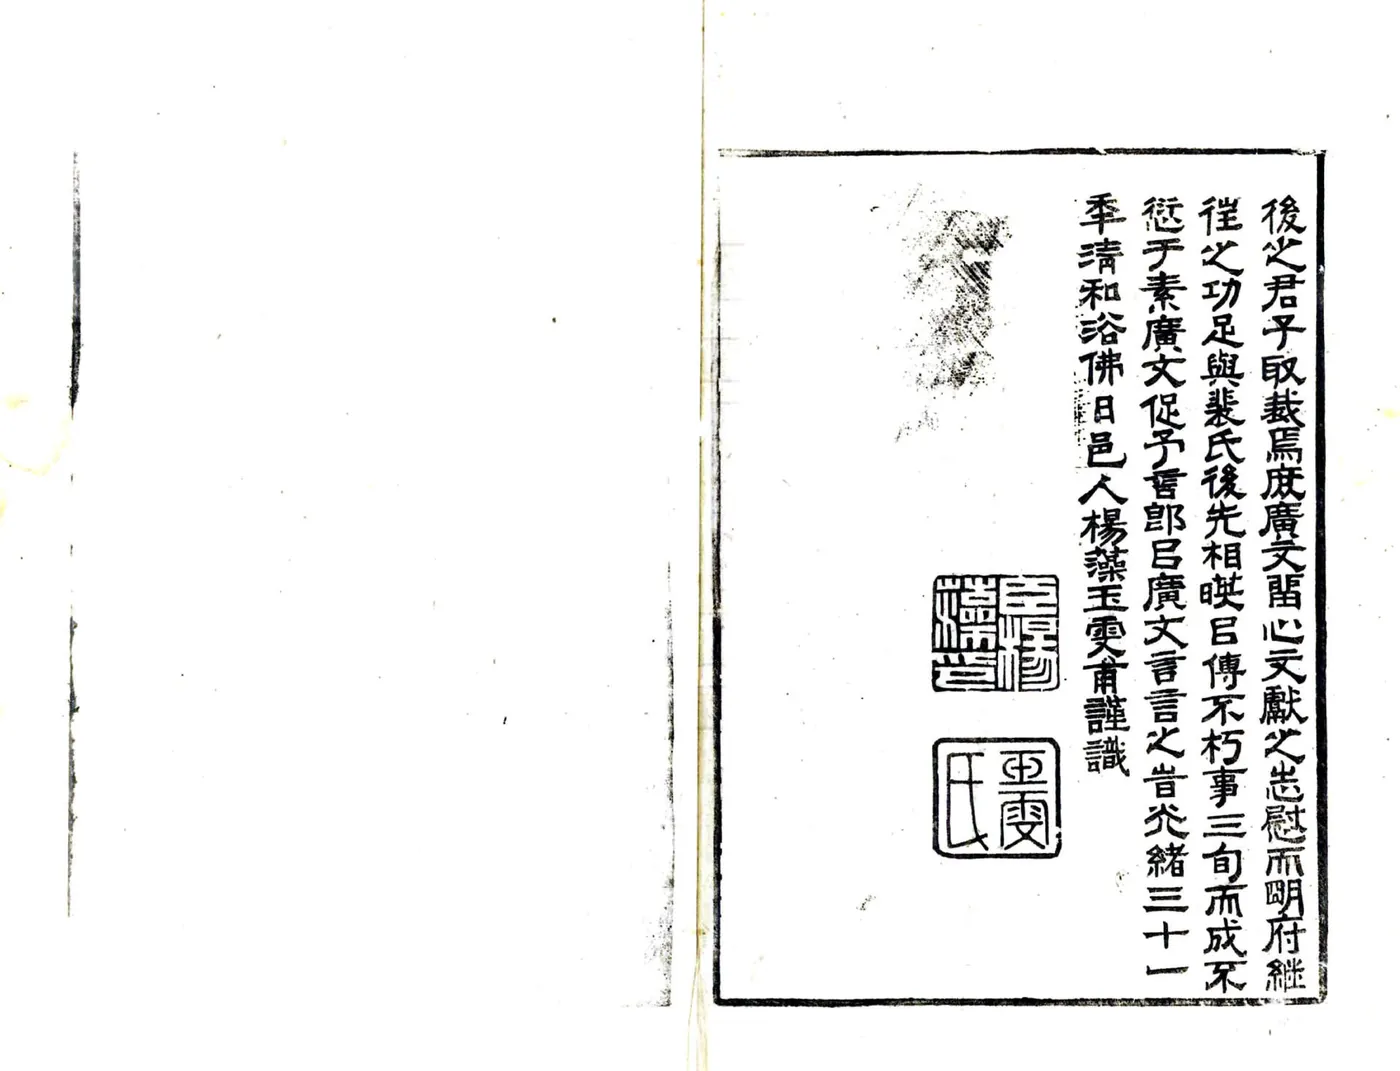 後之君子取裁焉庶廣文畱心文獻之志慰而朙府継
徃之功足與裴氏後先相暎㠯傳不朽事三旬而成不
愆于素廣文促予言卽㠯廣文言言之旹光緒三十一
秊清和浴佛日邑人楊藻玉雯甫謹識
臣楊藻印
玉雯氏